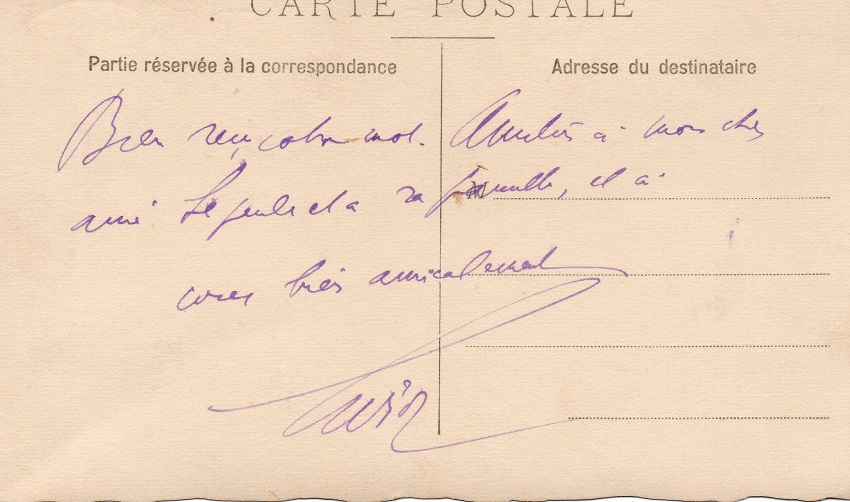 CARTE POSTALE
Partie réservée à la correspondance
Adresse du destinataire
Bien reçu votre mot. Amitiés à mon cher
ami et à sa famille, et à
vous bien amicalement